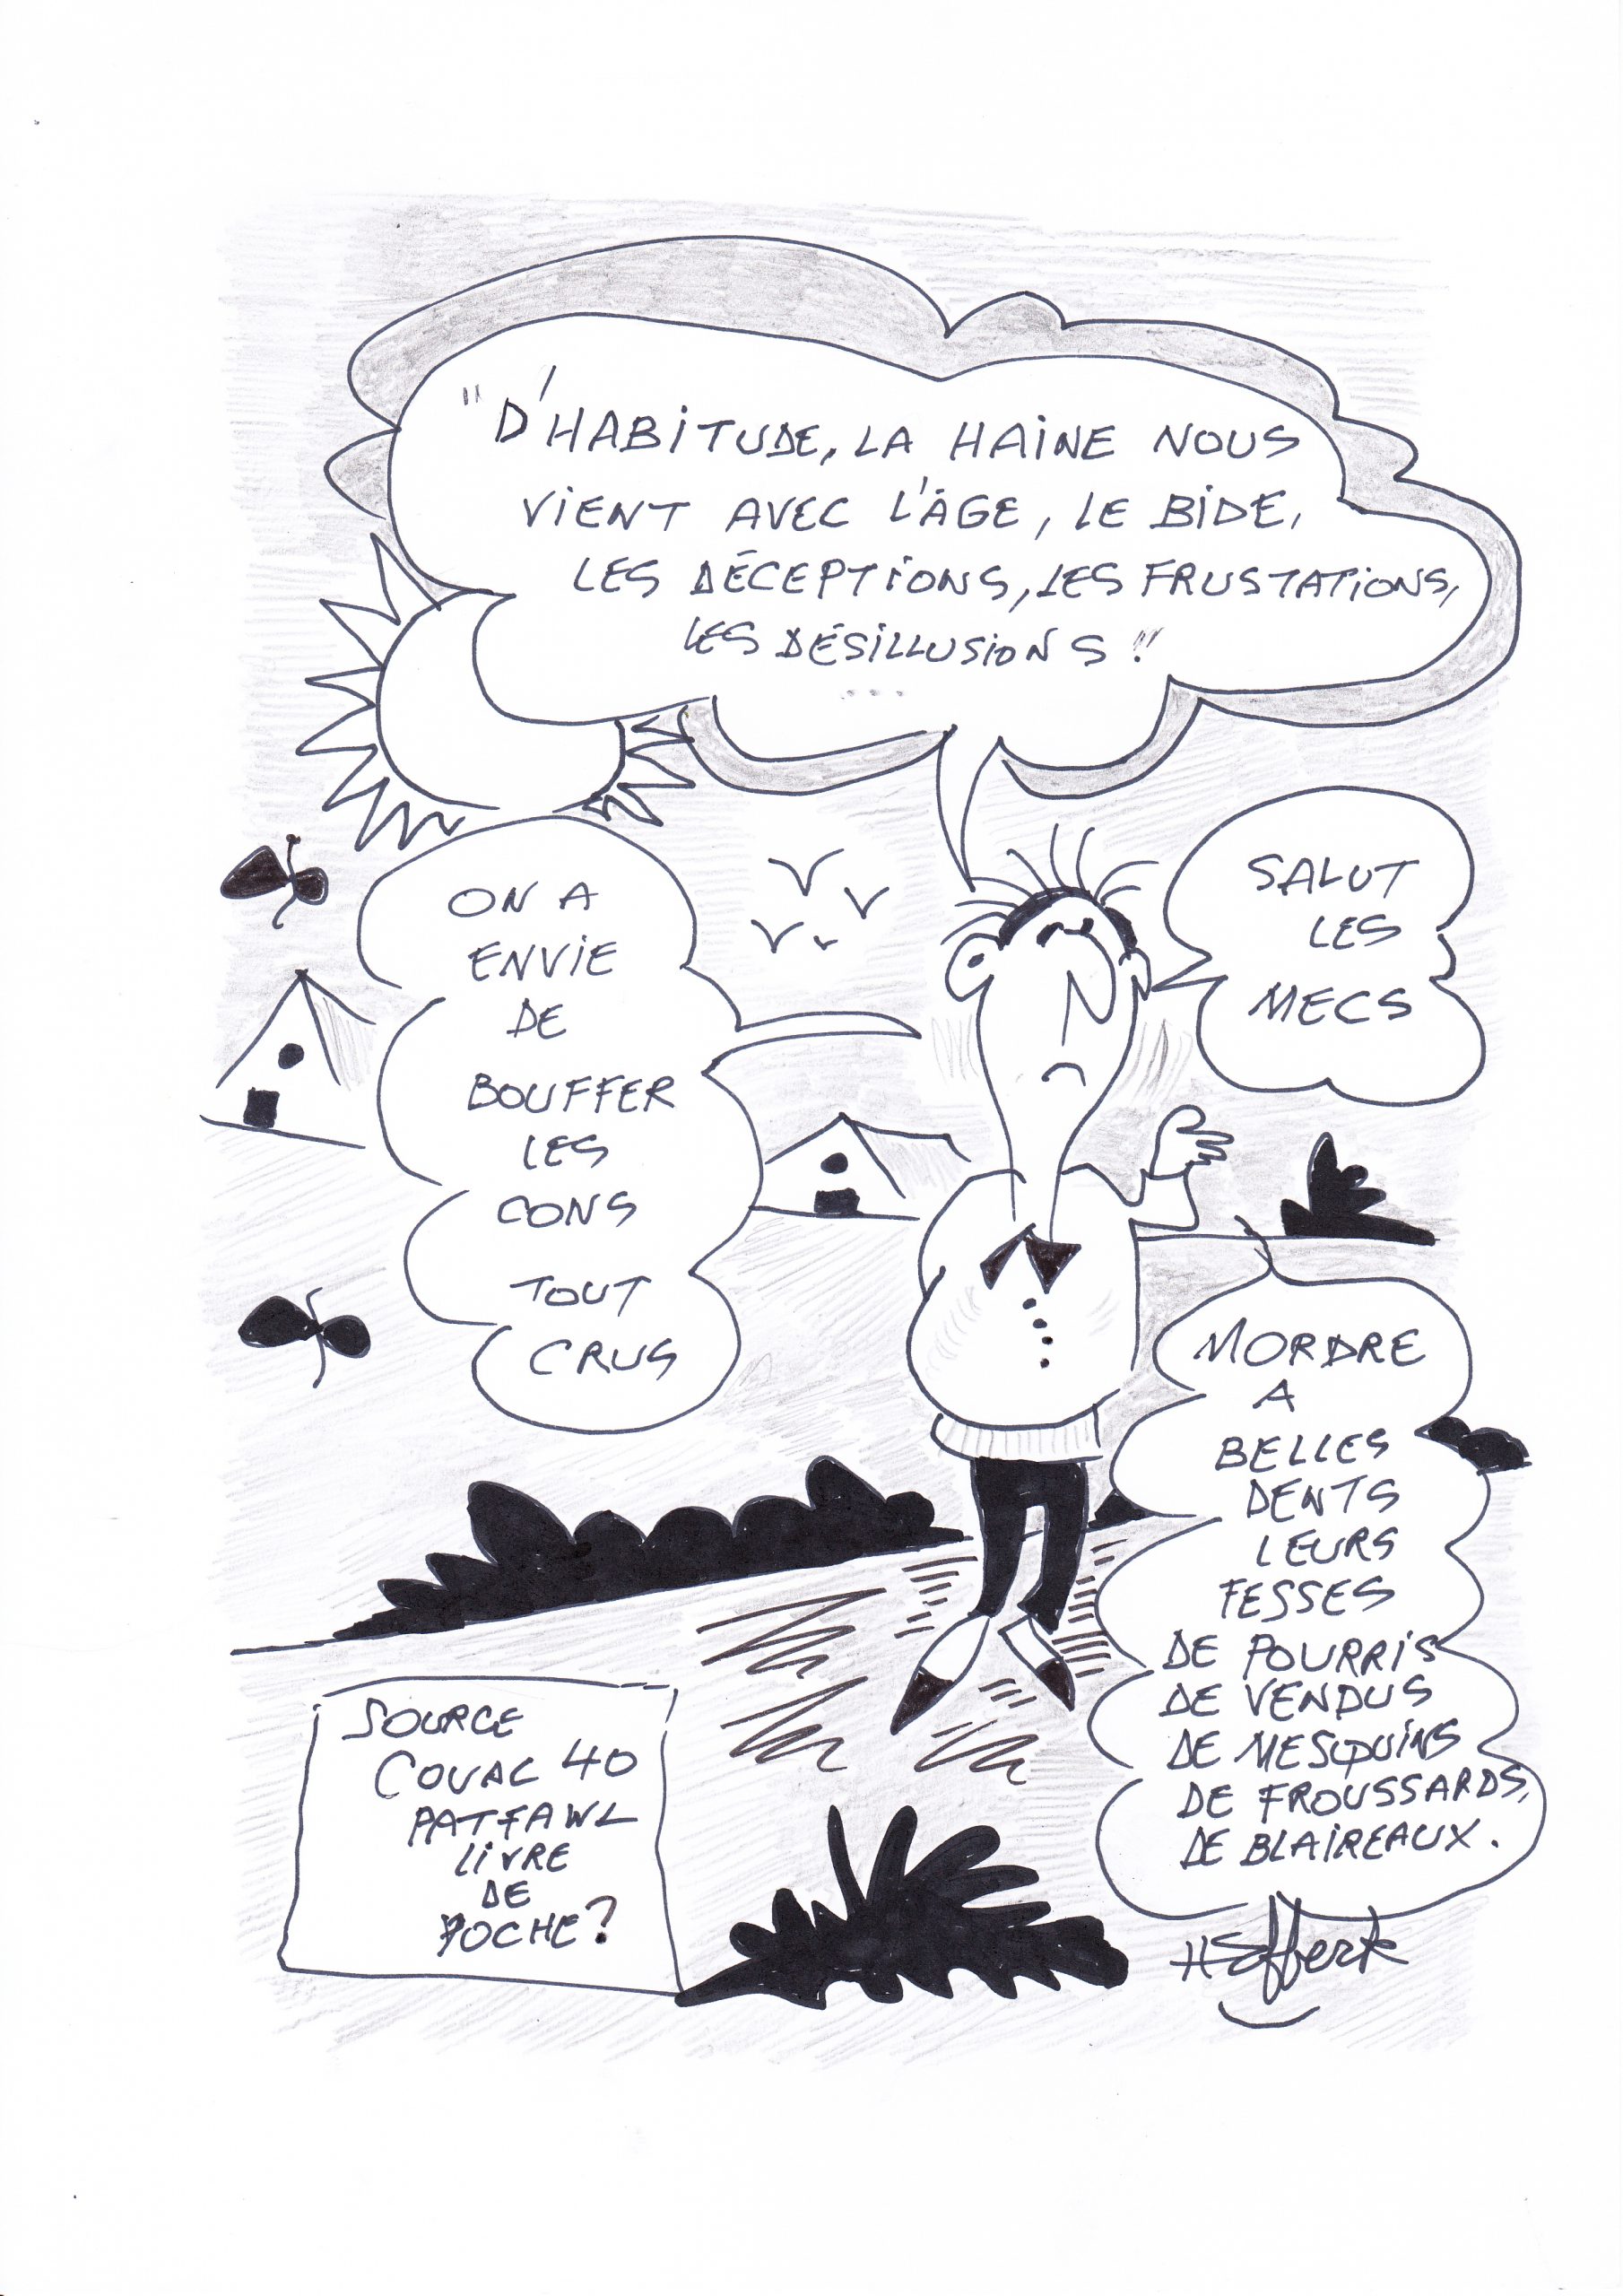 "D'HABITUDE, LA HAINE NOUS
VIENT AVEC L'ÂGE, LE BIDE,
LES DÉCEPTIONS, LES FRUSTATIONS,
LES DÉSILLUSIONS"
...
SALUT
LES
MECS
ON A
ENVIE
DE
BOUFFER
LES
CONS
TOUT
CRUS
MORDRE
A
BELLES
DENTS
LEURS
FESSES
DE POURRIS
DE VENDUS
DE MESQUINS
DE FROUSSARDS,
DE BLAIREAUX.
SOURCE
COUAC 40
PATFAWL
LIVRE
DE
POCHE?